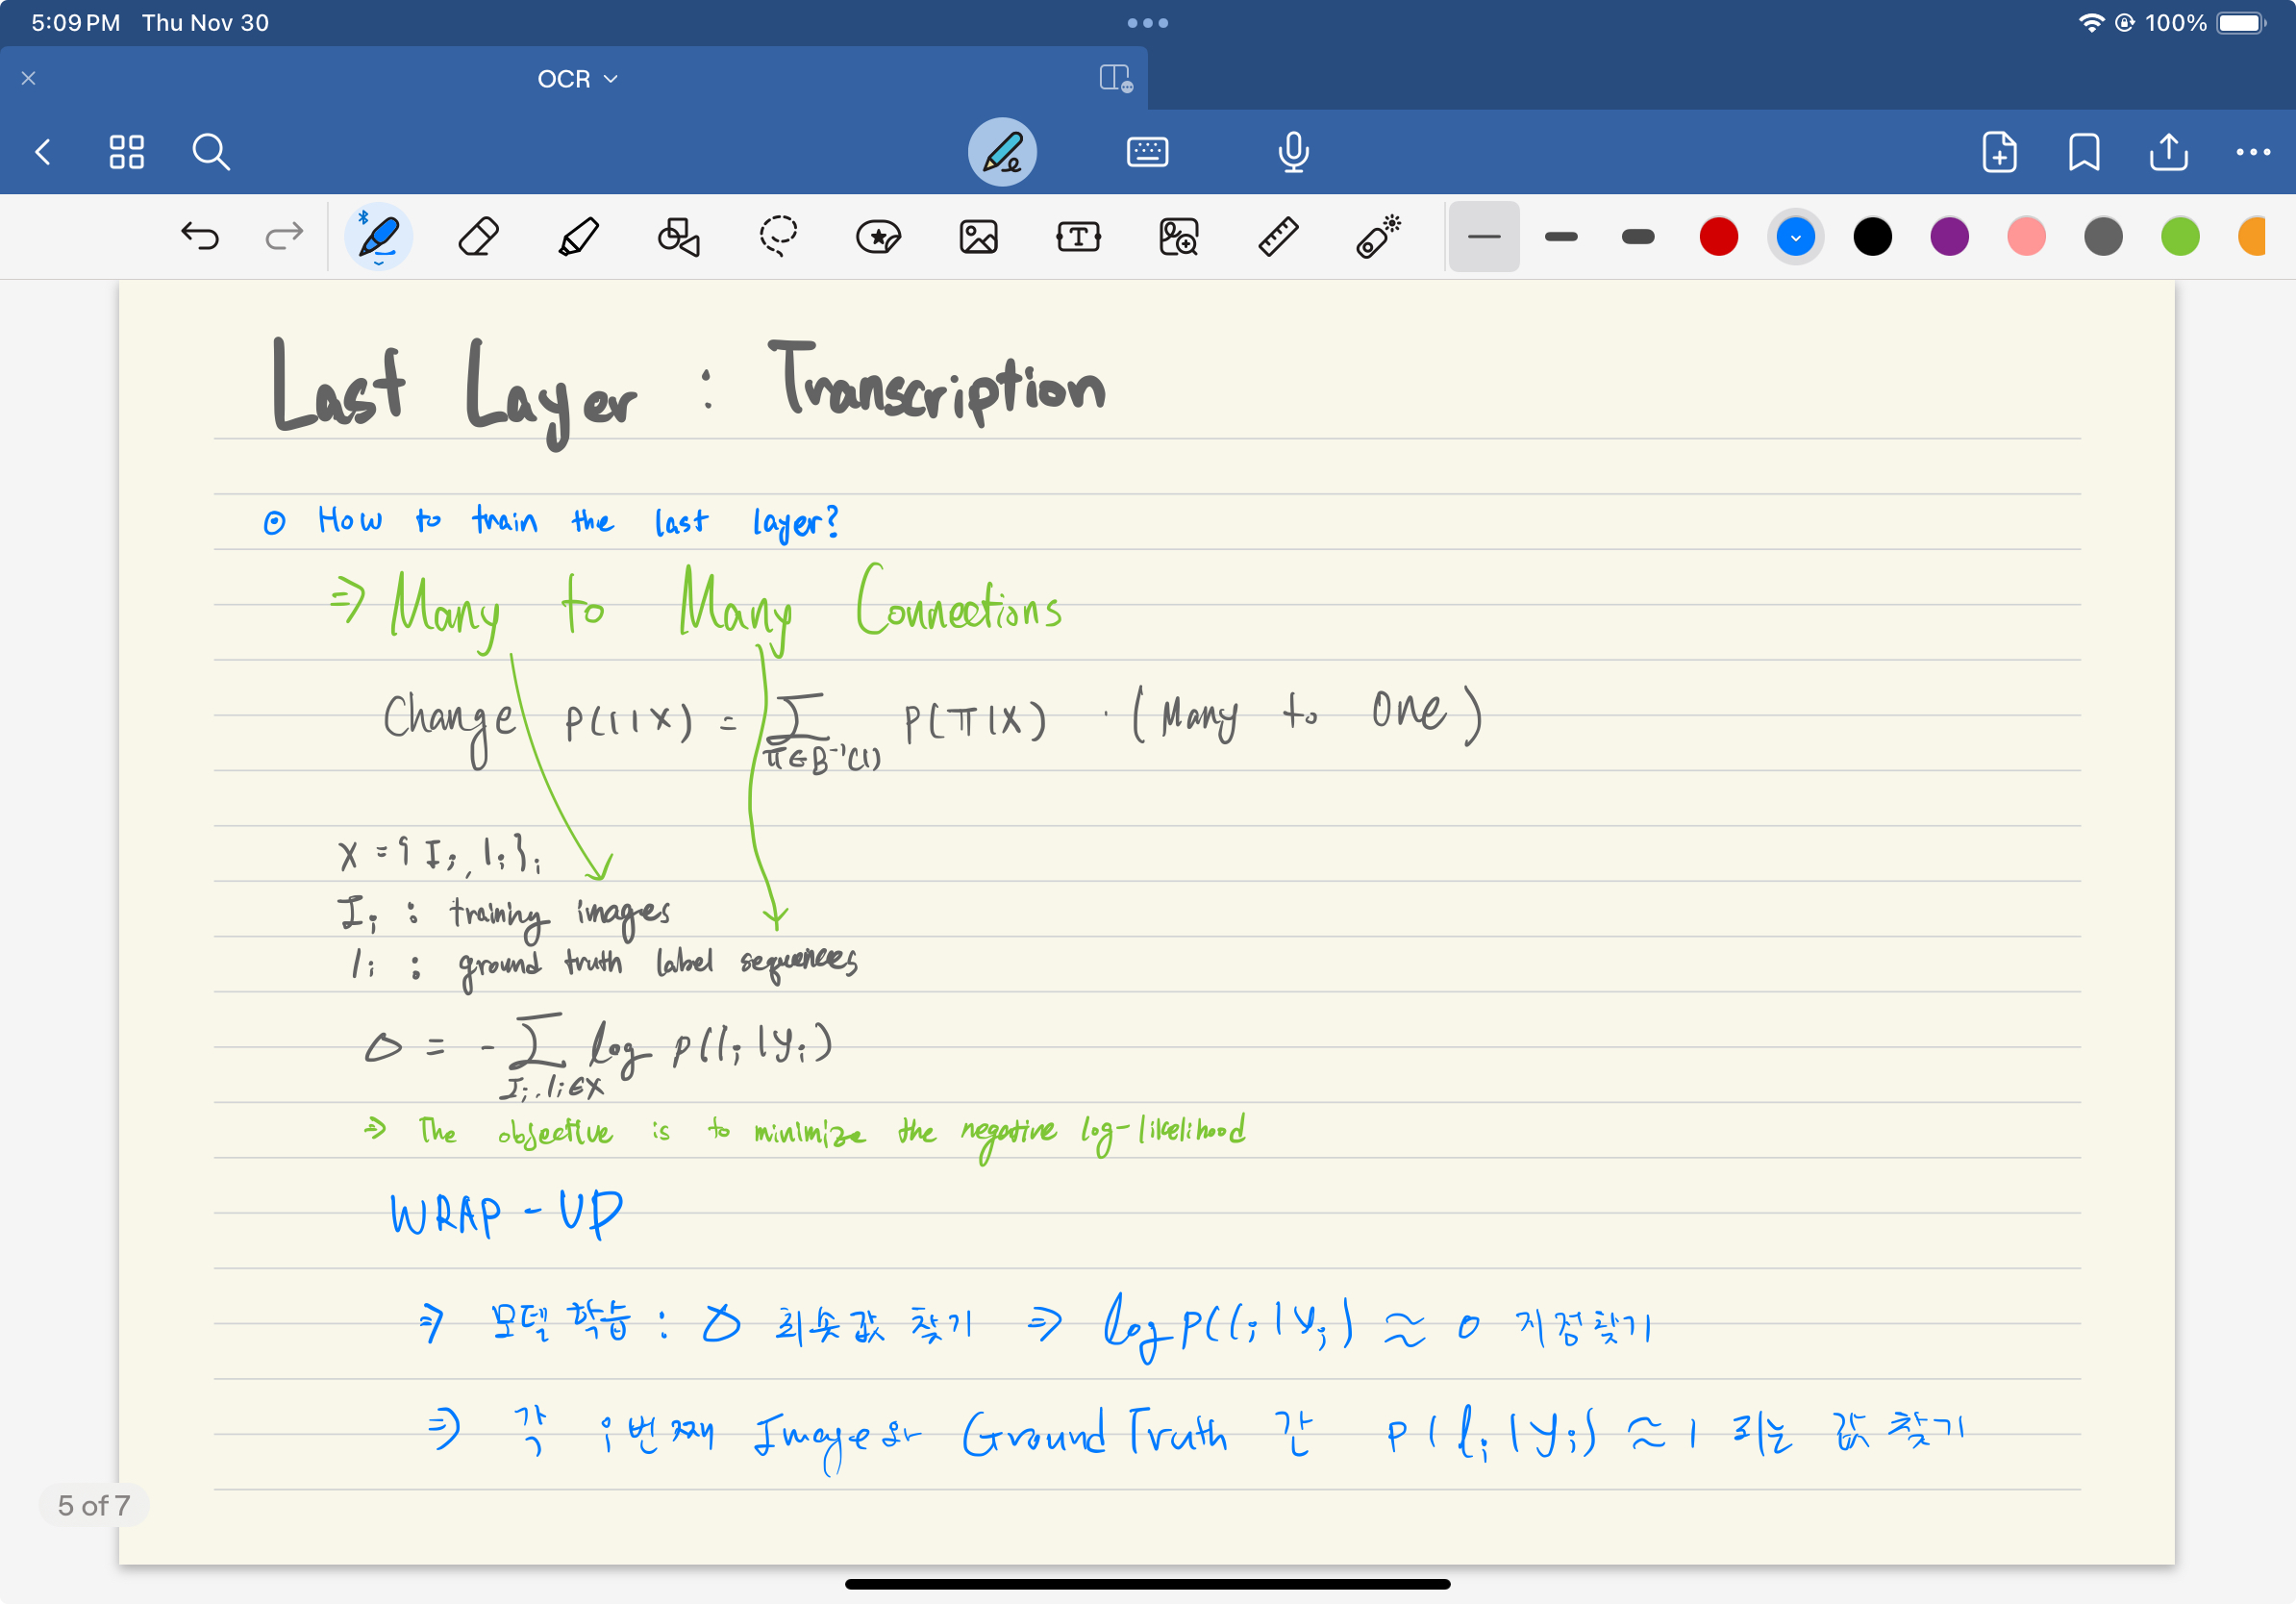 5:09 PM Thu Nov 30
100%
OCR
Last Layer : Transcription
⊙ How to train the last layer?
⇒ Many to Many Connections
Change p(l|x) = ∑ p(π|x) · (Many to One)
π∈B⁻¹(l)
X = {I_i, l_i}_i
I_i : training images
l_i : ground truth label sequences
O = - ∑ log p(l_i|y_i)
I_i, l_i ∈ X
⇒ The objective is to minimize the negative log-likelihood
WRAP - UP
⇒ 모델 학습 : O 최솟값 찾기 ⇒ log p(l_i|y_i) ≈ 0 지점찾기
⇒ 각 i번째 Image와 Ground Truth 간 p(l_i|y_i) ≈ 1 되는 값 찾기
5 of 7